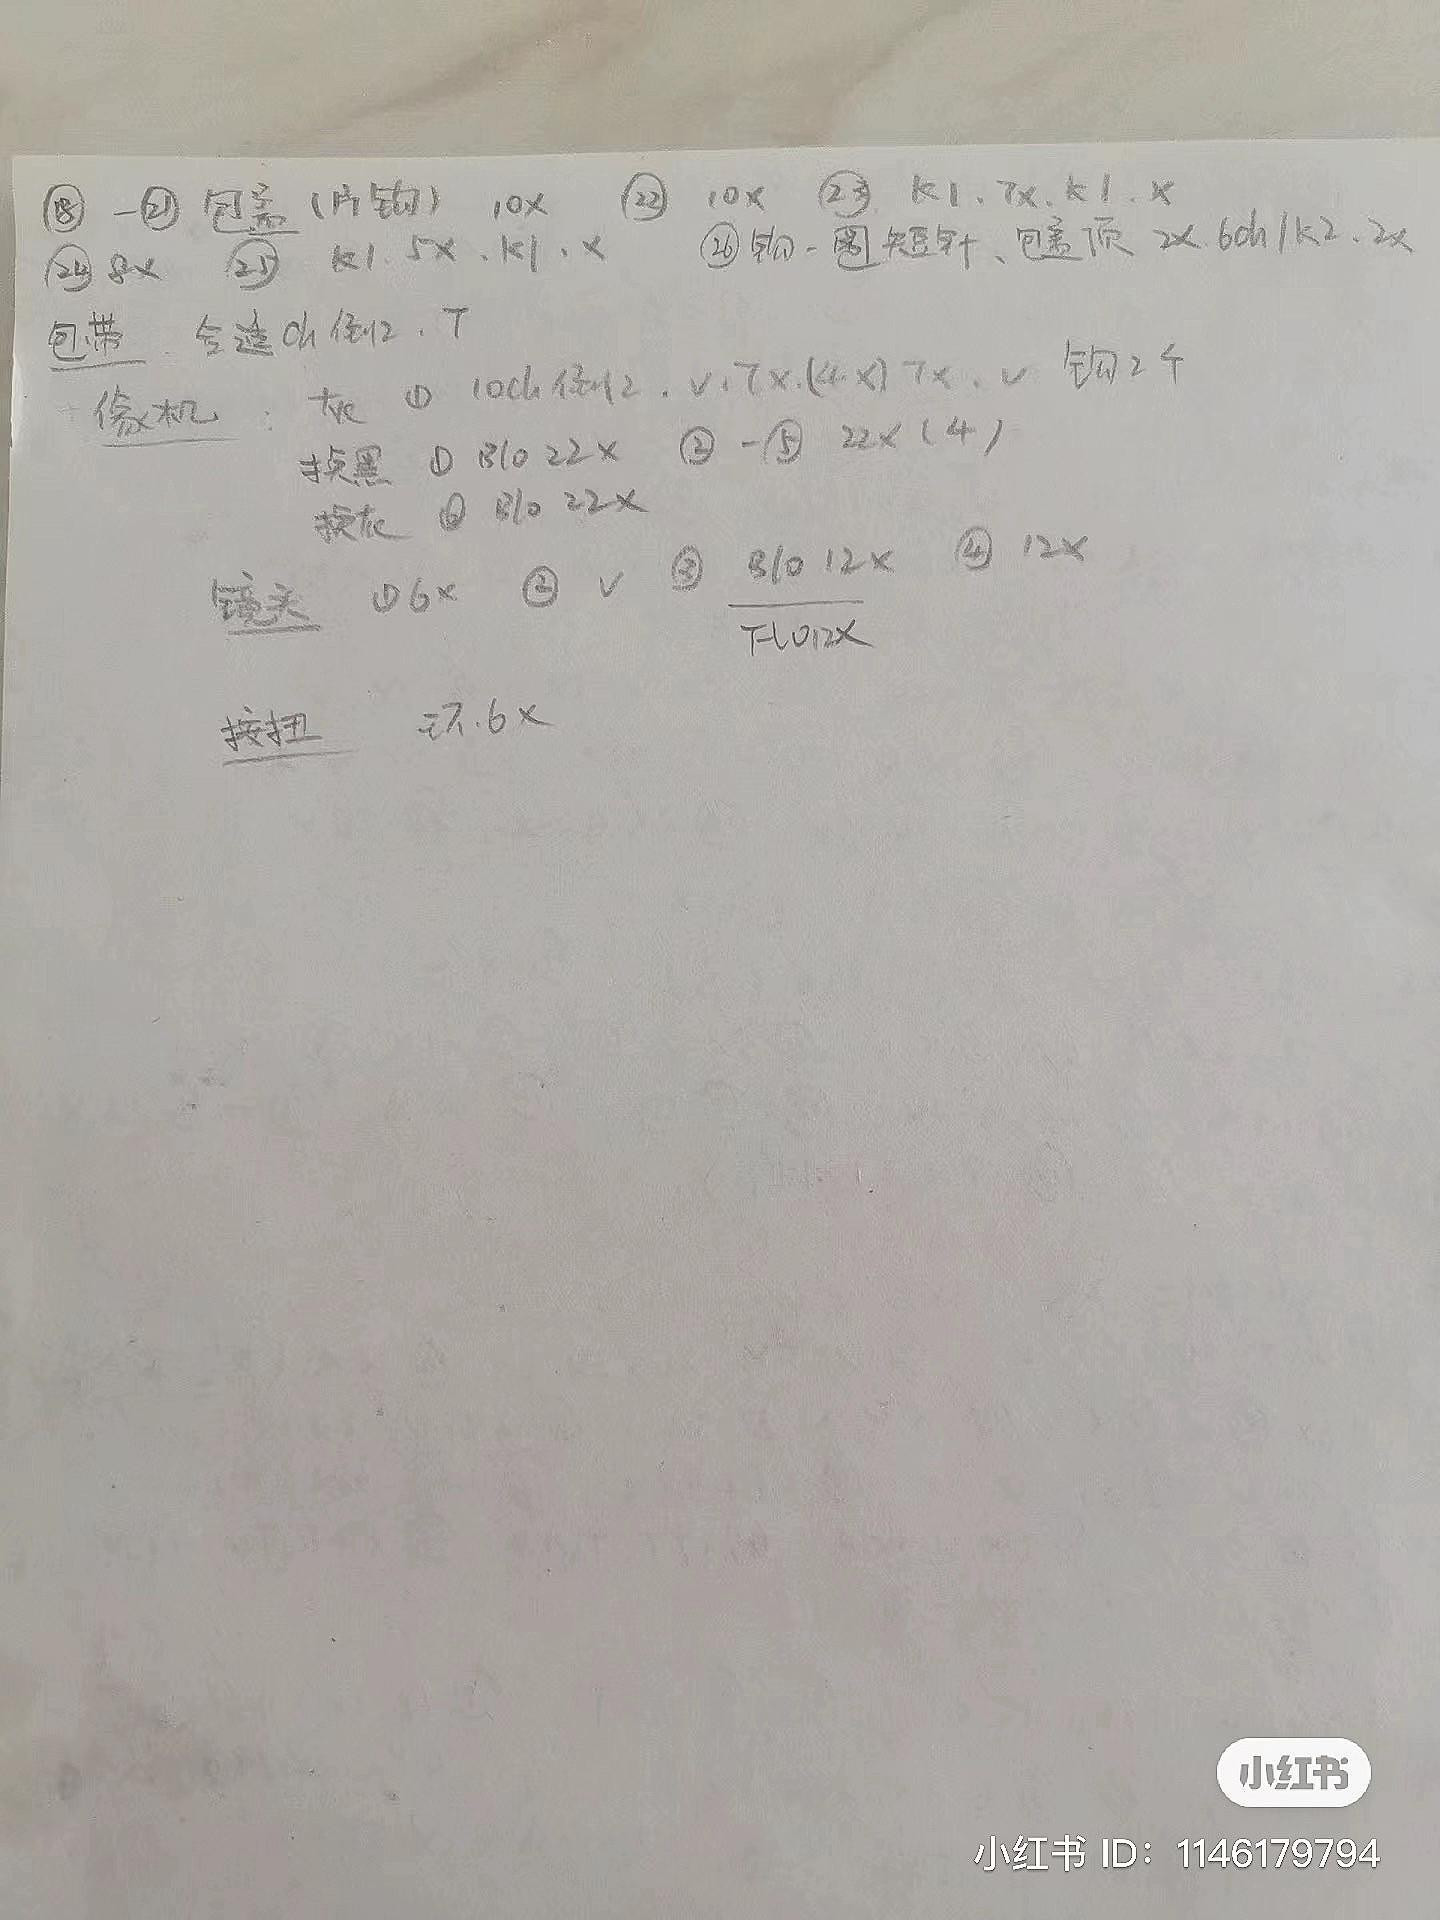 ⑱-㉑ 包盖(片钩) 10x ㉒ 10x ㉓ k1.7x.k1.x
㉔ 8x ㉕ k1.5x.k1.x ㉖钩一圈短针、包盖顶 2x.6ch/k2.2x
包带. 合适ch倒2.T
像机: 灰 ① 10ch倒2.v.7x.(4x)7x.v 钩2个
换黑 ① Blo 22x ②-⑤ 22x(4)
换灰 ⑥ Blo 22x
镜头 ①6x ② v ③ Blo 12x ④ 12x
FLO12x
按扭 环.6x
小红书
小红书 ID: 1146179794